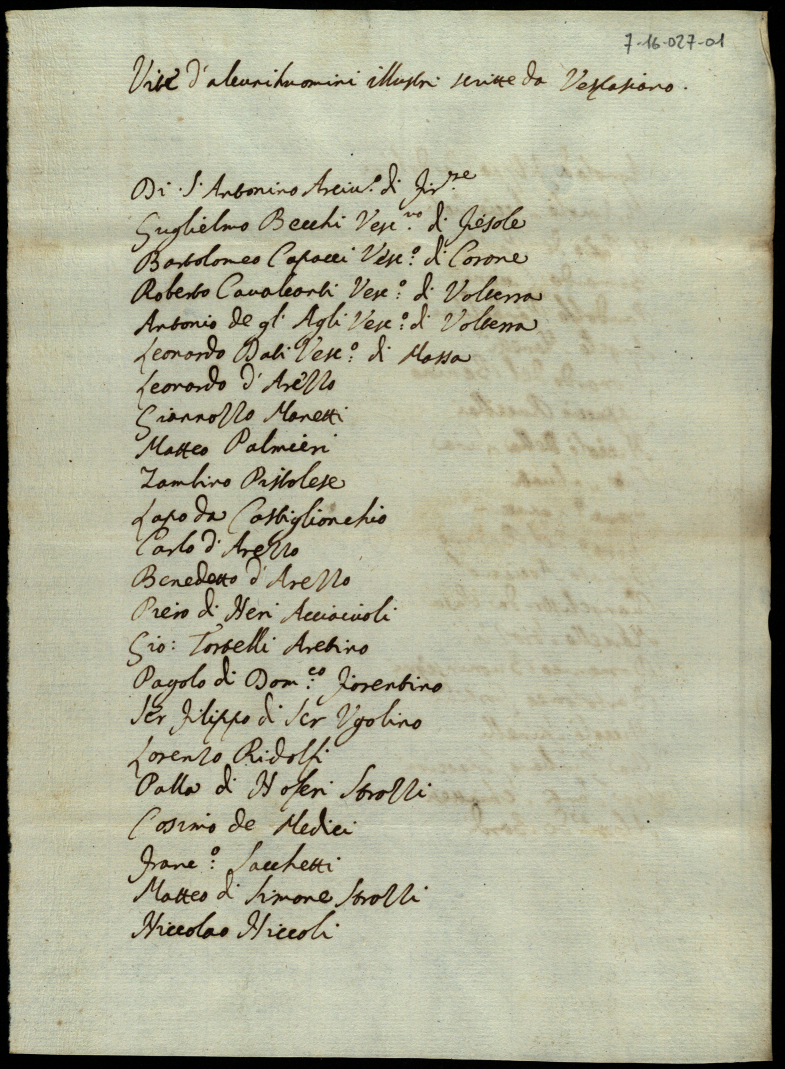 7-16-027-01
Vite d'alcuni huomini illustri scritte da Vespasiano.
Di S. Antonino Arciv.º di Fir.ze
Guglielmo Becchi Vesc.vo di Fiesole
Bartolomeo Capacci Vesc.º di Corone
Roberto Cavalcanti Vesc.º di Volterra
Antonio de gl'Agli Vesc.º di Volterra
Leonardo Dati Vesc.º di Massa
Leonardo d'Arezzo
Giannozzo Manetti
Matteo Palmieri
Zambino Pistolese
Lapo da Castiglionchio
Carlo d'Arezzo
Benedetto d'Arezzo
Piero di Neri Acciaiuoli
Gio: Tortelli Aretino
Pagolo di Dom.co Fiorentino
Ser Filippo di Ser Ugolino
Lorenzo Ridolfi
Palla di Noferi Strozzi
Cosimo de Medici
Franc.º Sacchetti
Matteo di Simone Strozzi
Niccolao Niccoli